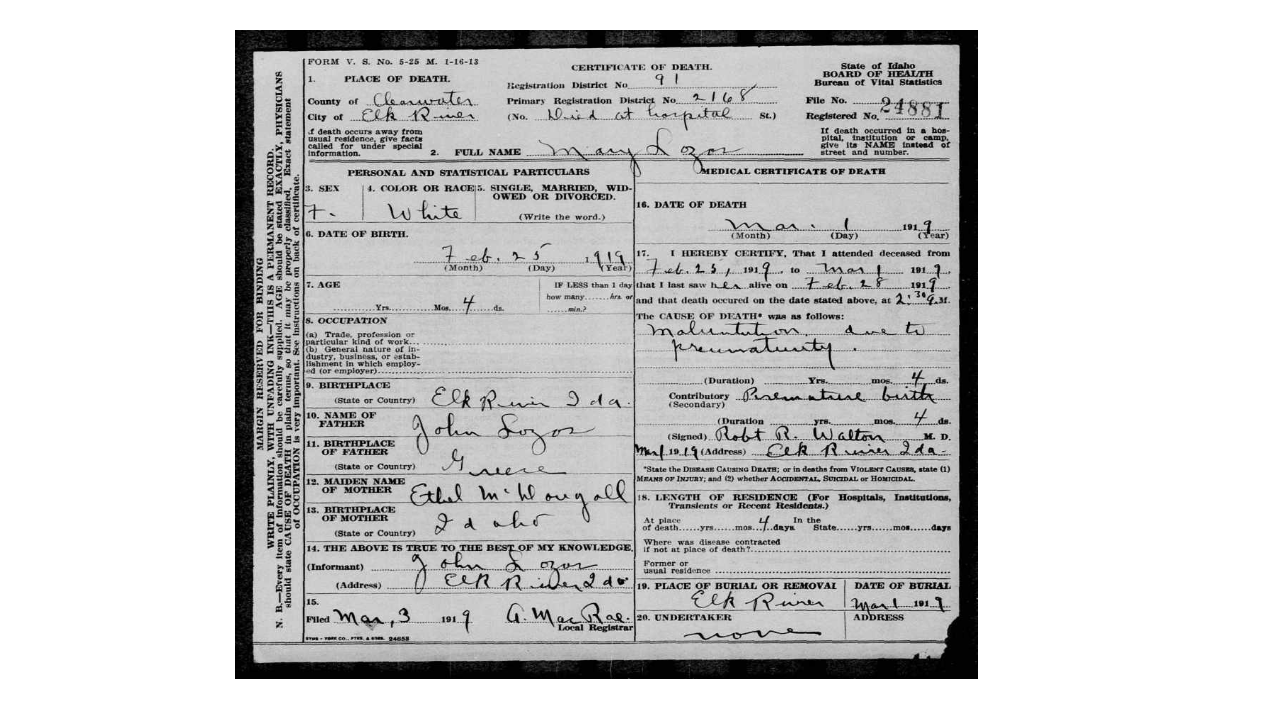 MARGIN RESERVED FOR BINDING
WRITE PLAINLY, WITH UNFADING INK—THIS IS A PERMANENT RECORD.
N. B.—Every item of information should be carefully supplied. AGE should be stated EXACTLY, PHYSICIANS
should state CAUSE OF DEATH in plain terms, so that it may be properly classified. Exact statement
of OCCUPATION is very important. See instructions on back of certificate.
FORM V. S. No. 5-25 M. 1-16-13
CERTIFICATE OF DEATH.
State of Idaho
BOARD OF HEALTH
Bureau of Vital Statistics
1. PLACE OF DEATH.
Registration District No 91
County of Clearwater
Primary Registration District No. 2168
File No. 24881
City of Elk River
(No. Died at hospital St.)
Registered No.
if death occurs away from
usual residence, give facts
called for under special
information.
2. FULL NAME Mary Lozos
If death occurred in a hos-
pital, institution or camp,
give its NAME instead of
street and number.
PERSONAL AND STATISTICAL PARTICULARS
3. SEX
F.
4. COLOR OR RACE
White
5. SINGLE, MARRIED, WID-
OWED OR DIVORCED.
(Write the word.)
6. DATE OF BIRTH.
Feb. 25 1919
(Month) (Day) (Year)
7. AGE
Yrs. Mos. 4 ds.
IF LESS than 1 day
how many hrs. or
min.?
8. OCCUPATION
(a) Trade, profession or
particular kind of work
(b) General nature of in-
dustry, business, or estab-
lishment in which employ-
ed (or employer)
9. BIRTHPLACE
(State or Country) Elk River Ida.
10. NAME OF
FATHER John Lozos
11. BIRTHPLACE
OF FATHER
(State or Country) Greece
12. MAIDEN NAME
OF MOTHER Ethel McDougall
13. BIRTHPLACE
OF MOTHER
(State or Country) Idaho
14. THE ABOVE IS TRUE TO THE BEST OF MY KNOWLEDGE,
(Informant) John Lozos
(Address) Elk River Ida
15.
Filed Mar, 3 1919 A. MacRae.
Local Registrar
24858
MEDICAL CERTIFICATE OF DEATH
16. DATE OF DEATH
Mar. 1 1919
(Month) (Day) (Year)
17. I HEREBY CERTIFY, That I attended deceased from
Feb. 25, 1919 to Mar 1 1919,
that I last saw her alive on Feb. 28 1919
and that death occured on the date stated above, at 2:30 a.M.
The CAUSE OF DEATH* was as follows:
Malnutution due to
prematurity.
(Duration) Yrs. mos. 4 ds.
Contributory Premature birth
(Secondary)
(Duration yrs. mos. 4 ds.
(Signed) Robt R. Walton M. D.
Mar 1 1919 (Address) Elk River Ida.
*State the DISEASE CAUSING DEATH; or in deaths from VIOLENT CAUSES, state (1)
MEANS OF INJURY; and (2) whether ACCIDENTAL, SUICIDAL or HOMICIDAL.
18. LENGTH OF RESIDENCE (For Hospitals, Institutions,
Transients or Recent Residents.)
At place In the
of death yrs. mos. 4 days State yrs. mos. days
Where was disease contracted
if not at place of death?
Former or
usual residence
19. PLACE OF BURIAL OR REMOVAL
Elk River
DATE OF BURIAL
Mar 1 1919
20. UNDERTAKER
none
ADDRESS